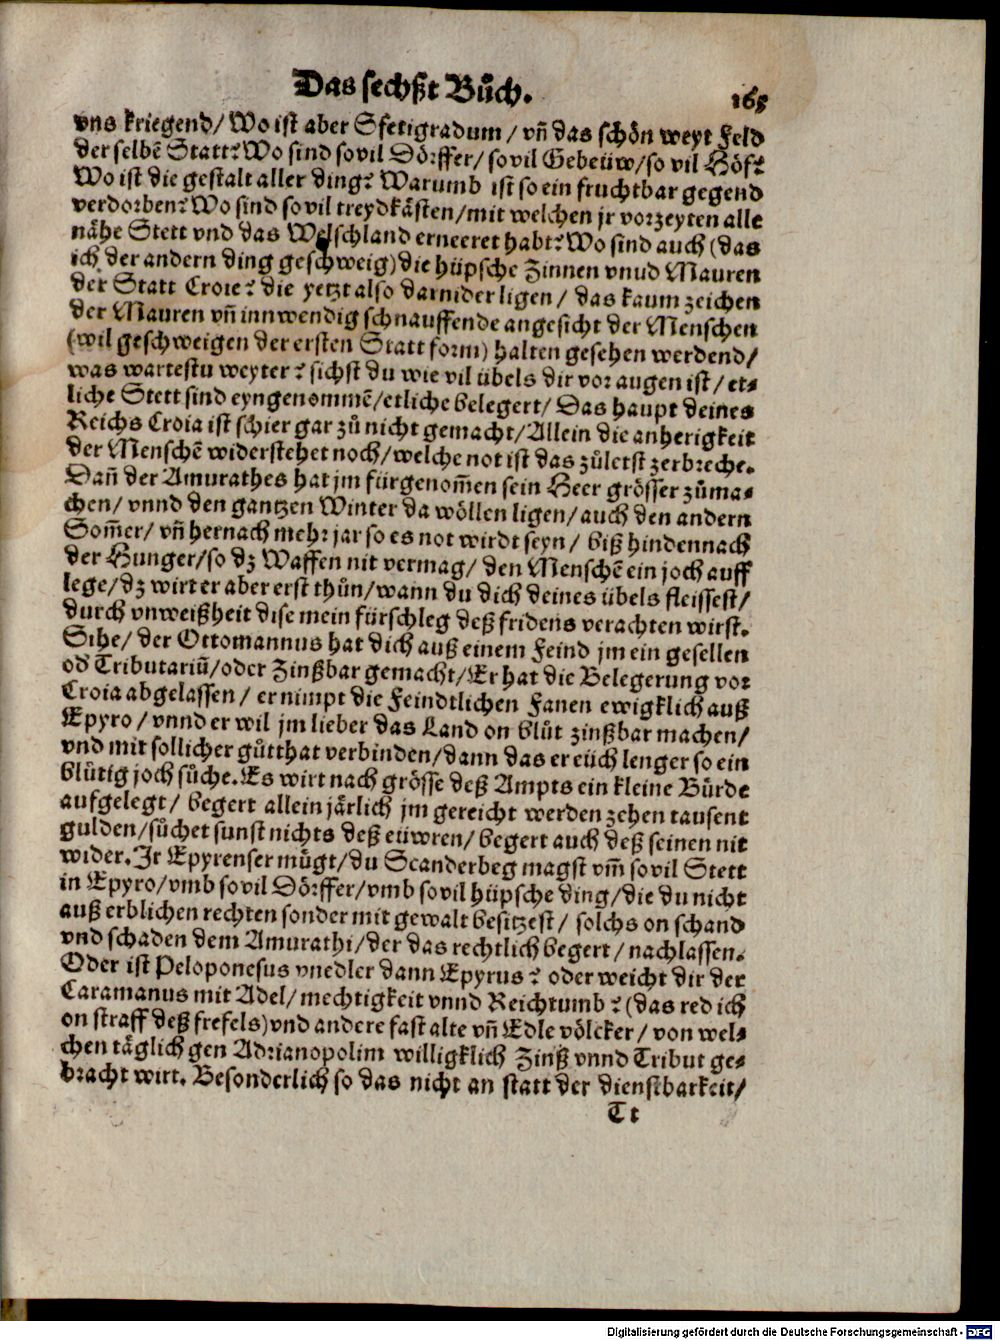 Das sechßt Bůch.
165
vns kriegend/ Wo ist aber Sfetigradum / vñ das schön weyt Feld
der selbẽ Statt? Wo sind so vil Dörffer/ so vil Gebeüw/ so vil Höf?
Wo ist die gestalt aller ding? Warumb ist so ein fruchtbar gegend
verdorben? Wo sind so vil treydkästen/ mit welchen jr vorzeyten alle
nähe Stett vnd das Welschland erneeret habt? Wo sind auch (das
ich der andern ding geschweig) die hüpsche Zinnen vnud Mauren
der Statt Croie? die yetzt also darnider ligen / das kaum zeichen
der Mauren vñ innwendig schnauffende angesicht der Menschen
(wil geschweigen der ersten Statt form) halten gesehen werdend/
was wartestu weyter? sichst du wie vil übels dir vor augen ist / et⸗
liche Stett sind eyngenommẽ/ etliche belegert/ Das haupt deines
Reichs Croia ist schier gar zů nicht gemacht/ Allein die anherigkeit
der Menschẽ widerstehet noch/ welche not ist das zůletst zerbreche.
Dañ der Amurathes hat jm fürgenom̃en sein Heer grösser zůma⸗
chen/ vnnd den gantzen Winter da wöllen ligen/ auch den andern
Som̃er/ vñ hernach mehr jar so es not wirdt seyn / biß hindennach
der Hunger/ so dz Waffen nit vermag/ den Menschẽ ein joch auff
lege/ dz wirt er aber erst thůn/ wann du dich deines übels fleissest/
durch vnweißheit dise mein fürschleg deß fridens verachten wirst.
Sihe/ der Ottomannus hat dich auß einem Feind jm ein gesellen
od Tributariũ/ oder Zinßbar gemacht/ Er hat die Belegerung vor
Croia abgelassen / er nimpt die Feindtlichen Fanen ewigklich auß
Epyro / vnnd er wil jm lieber das Land on blůt zinßbar machen/
vnd mit sollicher gůtthat verbinden/ dann das er eüch lenger so ein
blůtig joch sůche. Es wirt nach grösse deß Ampts ein kleine Bürde
aufgelegt/ begert allein järlich jm gereicht werden zehen tausent
gulden/ sůchet sunst nichts deß eüwren/ begert auch deß seinen nit
wider. Jr Epyrenser mügt/ du Scanderbeg magst vm̃ so vil Stett
in Epyro/ vmb so vil Dörffer/ vmb so vil hüpsche ding/ die du nicht
auß erblichen rechten sonder mit gewalt besitzest / solchs on schand
vnd schaden dem Amurathi/ der das rechtlich begert / nachlassen.
Oder ist Peloponesus vnedler dann Epyrus? oder weicht dir der
Caramanus mit Adel/ mechtigkeit vnnd Reichtumb? (das red ich
on straff deß frefels) vnd andere fast alte vñ Edle völcker / von wel⸗
chen täglich gen Adrianopolim willigklich Zinß vnnd Tribut ge⸗
bracht wirt. Besonderlich so das nicht an statt der dienstbarkeit/
Tt
Digitalisierung gefördert durch die Deutsche Forschungsgemeinschaft - DFG